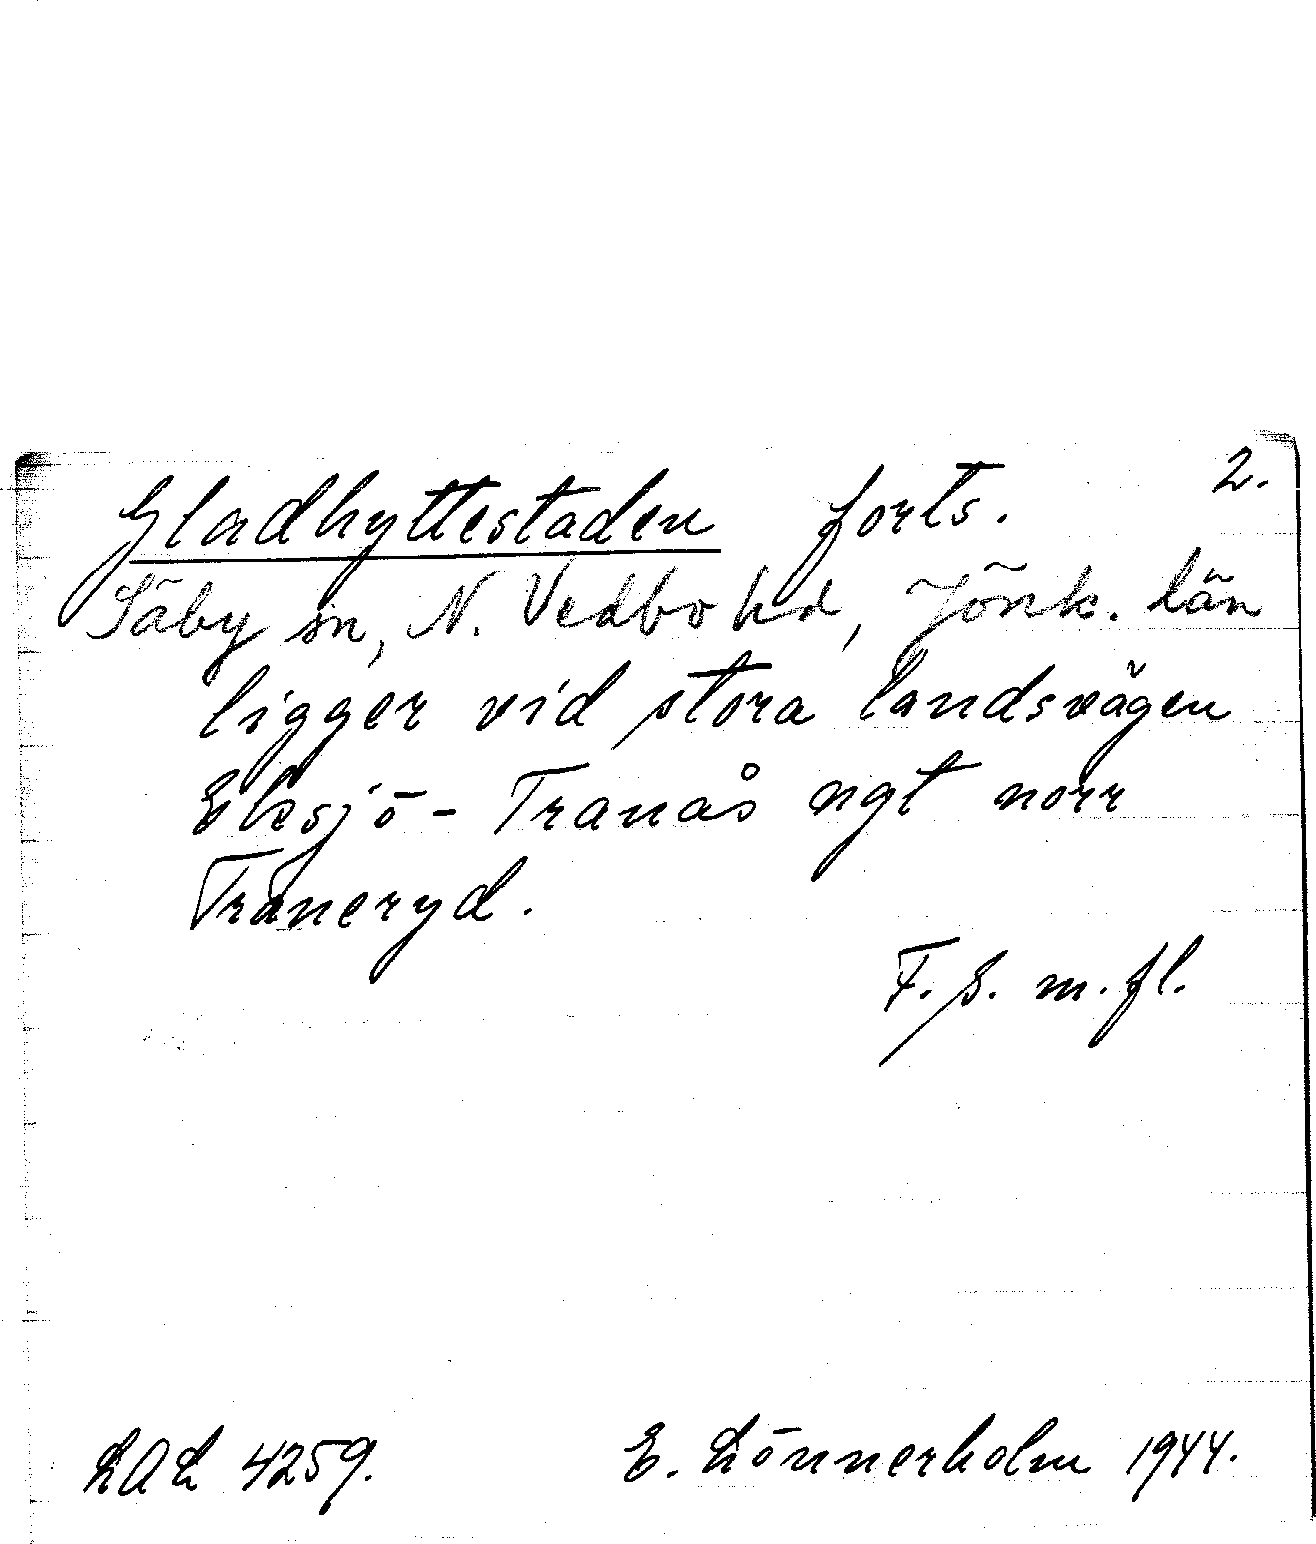 2.
Gladhyttestaden forts.
Säby sn, N. Vedbo hd, Jönk. län
ligger vid stora landsvägen
Eksjö - Tranås ngt norr
Traneryd.
F. S. m. fl.
LAL 4259. E. Lönnerholm 1944.